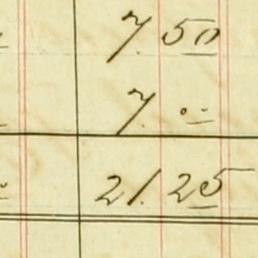 7. 50
7. ..
21. 25